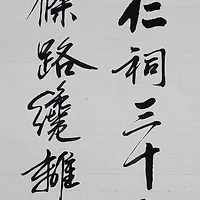 仁祠三十
條路纔